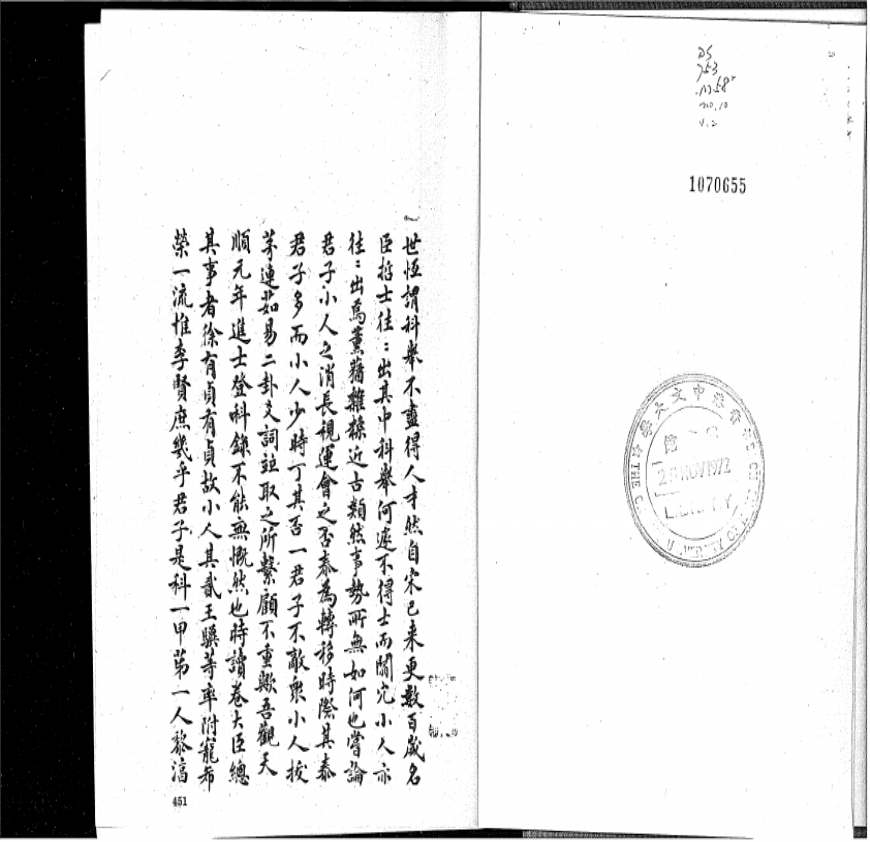 世恆謂科舉不盡得人才然自宋已來更數百歲名
臣哲士往：出其中科舉何遽不得士而闒宂小人亦
往：出焉薰蕕雜糅近古類然事勢所無如何也嘗論
君子小人之消長視運會之否泰為轉移時際其泰
君子多而小人少時丁其否一君子不敵衆小人拔
茅連茹易二卦爻詞竝取之所繫顧不重歟吾觀天
順元年進士登科錄不能無慨然也時讀卷大臣總
其事者徐有貞有貞故小人其貳王驥等率附寵希
榮一流惟李賢庶幾乎君子是科一甲苐一人黎淳
451
DS
753
.M58
no.10
v.2
1070655
25 NOV 1972